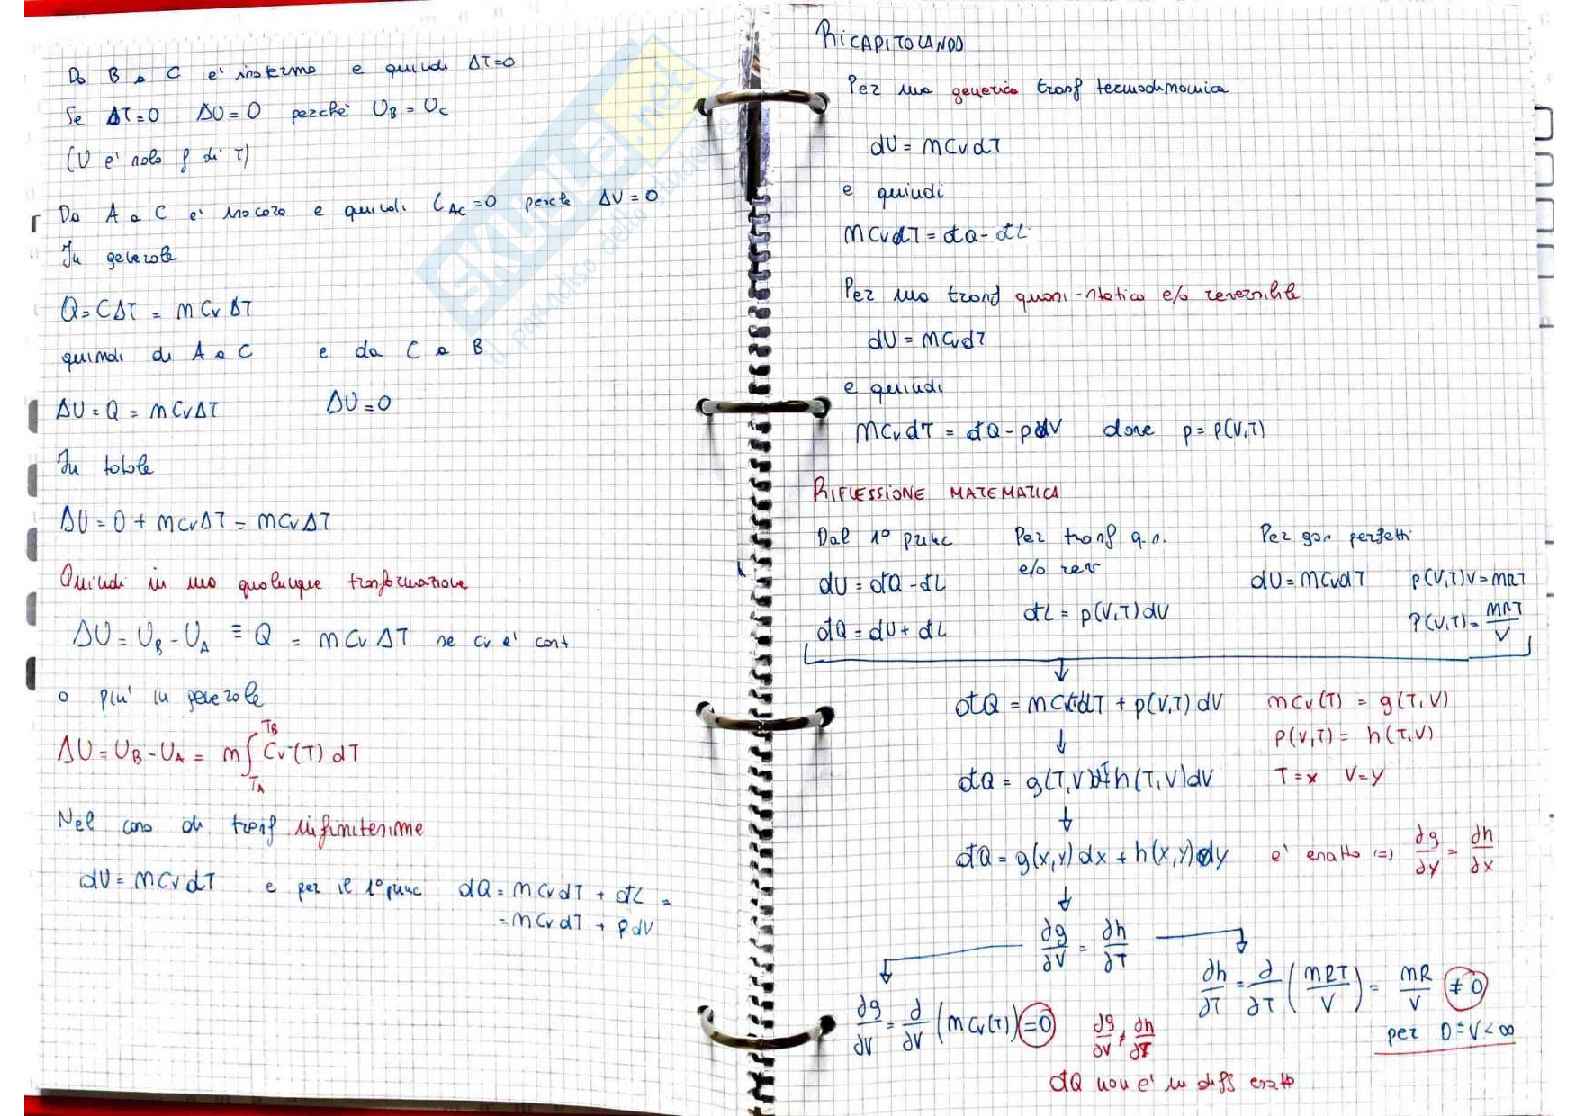 Da B a C e' isoterma e quindi ΔT=0
Se ΔT=0 ΔU=0 perché U_B = U_C
(U e' solo f di T)
Da A a C e' isocora e quindi L_AC=0 perché ΔV=0
In generale
Q=CΔT = m Cv ΔT
quindi da A a C e da C a B
ΔU=Q = m CvΔT ΔU=0
In totale
ΔU=0+mCvΔT = mCvΔT
Quindi in una qualunque trasformazione
ΔU=U_B-U_A ≡ Q = m Cv ΔT se cv e' cost
o piu' in generale
ΔU=U_B-U_A = m∫_{T_A}^{T_B} Cv(T) dT
Nel caso di trasf infinitesime
dU=mCvdT e per il 1° princ đQ=mCvdT + đL =
=mCvdT + pdV
RICAPITOLANDO
Per una generica trasf termodinamica
dU=mCvdT
e quindi
mCvdT=đQ-đL
Per una trasf quasi-statica e/o reversibile
dU=mCvdT
e quindi
mCvdT=đQ-pdV dove p=p(V,T)
RIFLESSIONE MATEMATICA
Dal 1° princ Per trasf q.s. Per gas perfetti
e/o rev
dU=đQ-đL đL=p(V,T)dV dU=mCvdT p(V,T)V=mRT
đQ=dU+đL p(V,T)=mRT/V
đQ=mCvdT+p(V,T)dV mCv(T) = g(T,V)
p(V,T) = h(T,V)
đQ=g(T,V)dT+h(T,V)dV T=x V=y
đQ=g(x,y)dx+h(x,y)dy e' esatto <=> ∂g/∂y = ∂h/∂x
∂g/∂V = ∂h/∂T
∂h/∂T = ∂/∂T (mRT/V) = mR/V ≠0
∂g/∂V = ∂/∂V (mCv(T))=0 ∂g/∂V ≠ ∂h/∂T per 0=V<∞
đQ non e' un diff esatto
SKUOLA.net